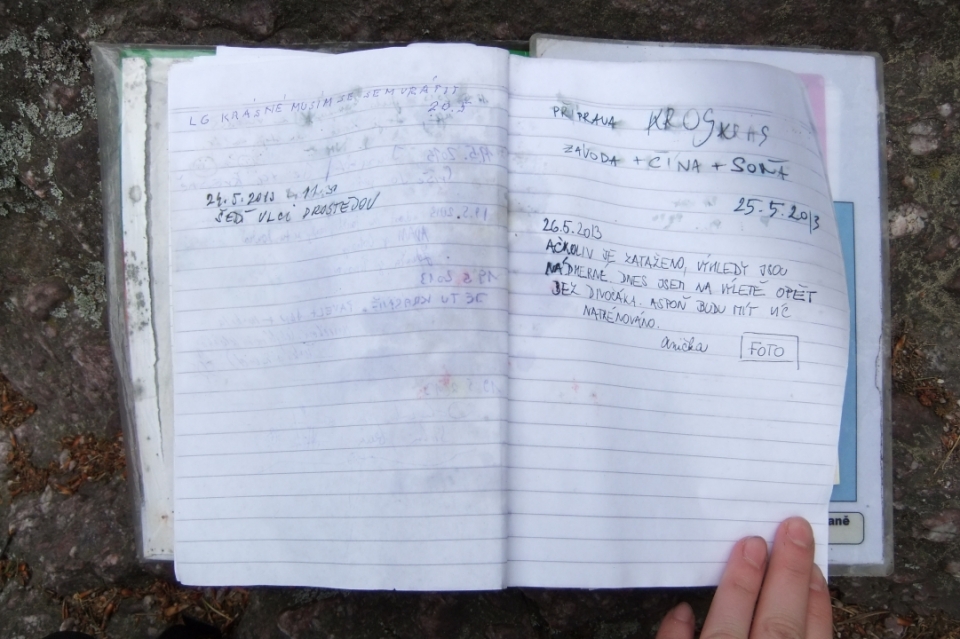 LG KRÁSNÉ MUSÍM SE SEM VRÁTIT
20.5
24.5.2013 11.30
ŠEDÍ VLCI DROSTĚJOV
PŘÍPRAVA KROSKRAS
ZÁVODA + ČÍNA + SOŇA
25.5.2013
26.5.2013
AČKOLIV JE ZATAŽENO, VÝHLEDY JSOU
NÁDHERNÉ DNES JSEM NA VÝLETĚ OPĚT
BEZ DIVOČÁKA. ASPOŇ BUDU MÍT VÍC
NATRÉNOVÁNO.
Anička FOTO
aně